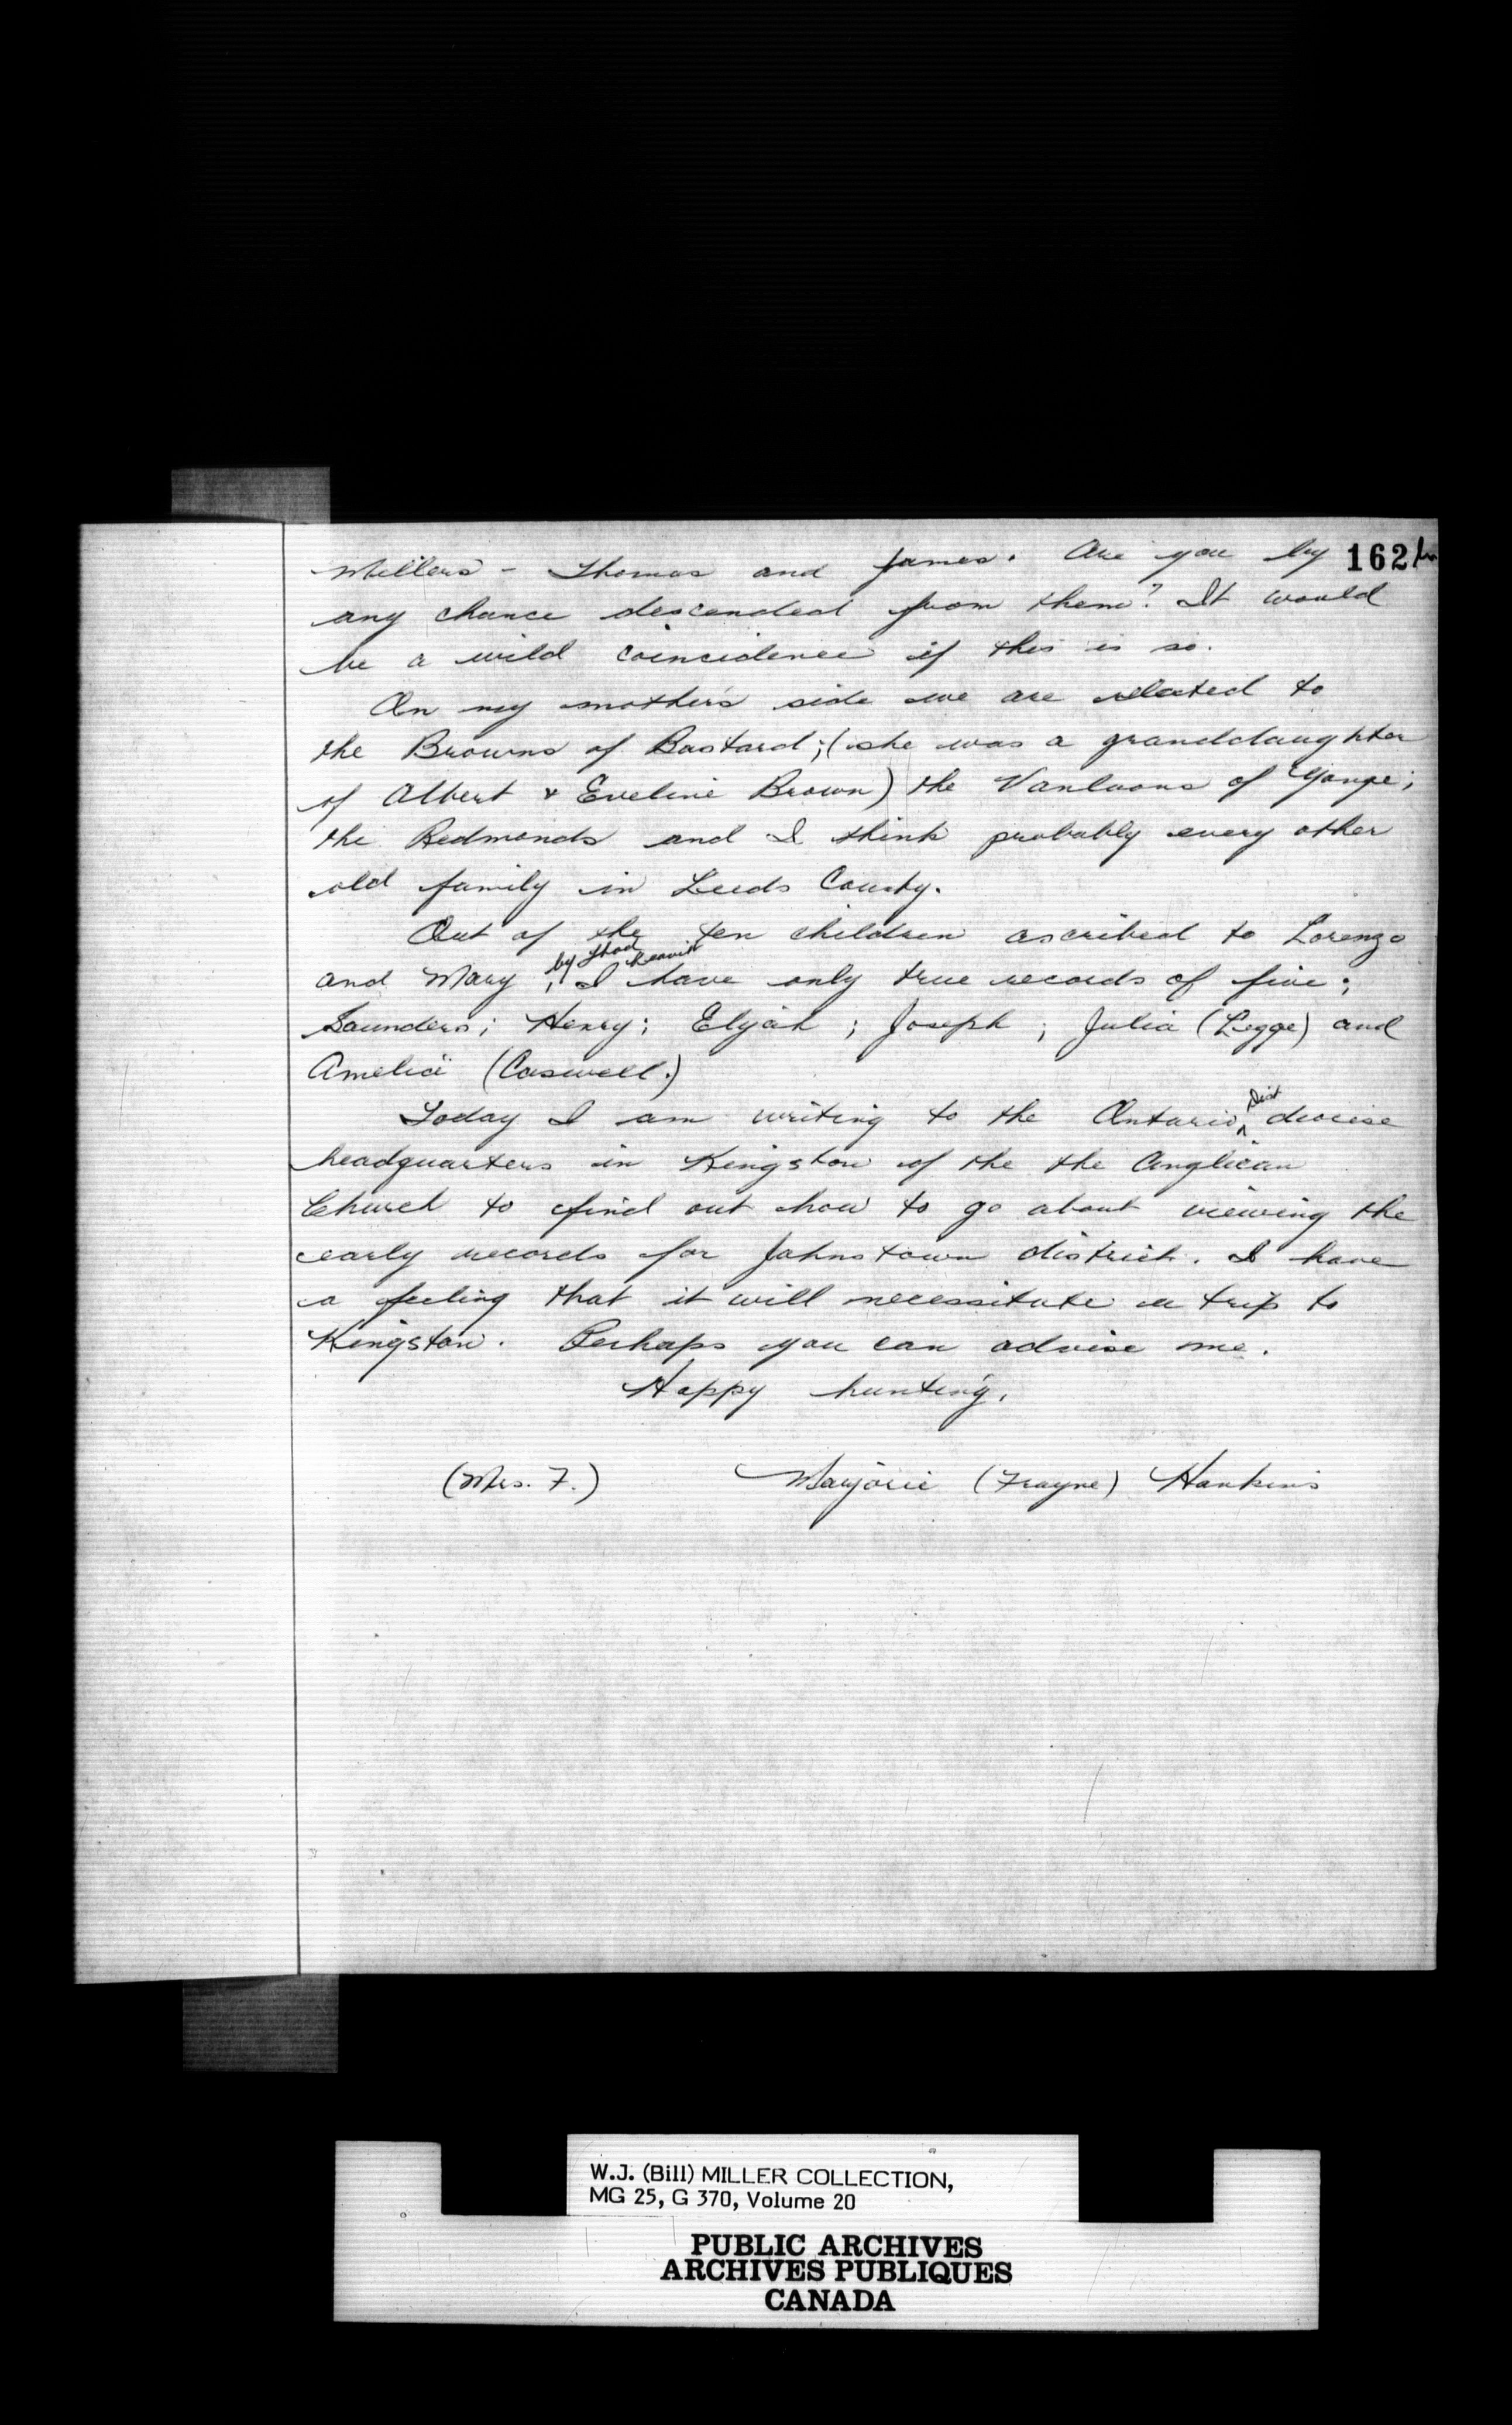 162
Millers - Thomas and James. Are you by
any chance descended from them? It would
be a wild coincidence if this is so.
On my mother's side we are related to
the Browns of Bastard; (she was a granddaughter
of Albert & Eveline Brown) the Vanloons of Yonge;
the Redmonds and I think probably every other
old family in Leeds County.
Out of the ten children ascribed to Lorenzo
by Thad Leavitt
and Mary, I have only true records of five;
Saunders; Henry; Elijah; Joseph; Julia (Legge) and
Amelia (Caswell.)
Today I am writing to the Ontario Dist diocese
headquarters in Kingston of the the Anglican
Church to find out how to go about viewing the
early records for Johnstown district. I have
a feeling that it will necessitate a trip to
Kingston. Perhaps you can advise me.
Happy hunting,
(Mrs. F.) Marjorie (Frayne) Hankins
W.J. (Bill) MILLER COLLECTION,
MG 25, G 370, Volume 20
PUBLIC ARCHIVES
ARCHIVES PUBLIQUES
CANADA